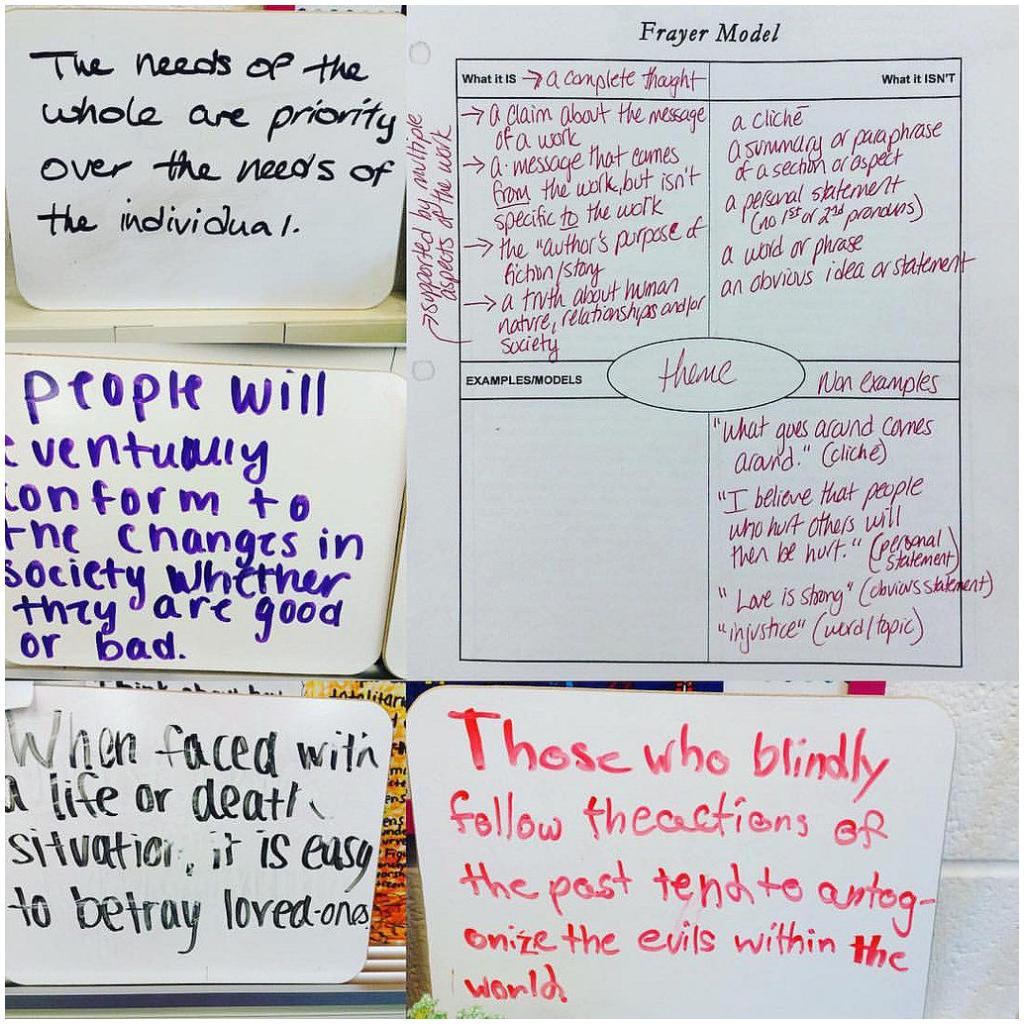 The needs of the
whole are priority
over the needs of
the individual.
Frayer Model
What it IS → a complete thought
What it ISN'T
→ a claim about the message
of a work
→ a message that comes
from the work, but isn't
specific to the work
→ the "author's purpose of
fiction/story
→ a truth about human
nature, relationships and/or
society
→ supported by multiple
aspects of the work
a cliché
a summary or paraphrase
of a section or aspect
a personal statement
(no 1st or 2nd pronouns)
a word or phrase
an obvious idea or statement
EXAMPLES/MODELS
theme
Non examples
"What goes around comes
around." (cliché)
"I believe that people
who hurt others will
then be hurt." (personal
statement)
"Love is strong" (obvious statement)
"injustice" (word/topic)
people will
eventually
conform to
the changes in
society whether
they are good
or bad.
When faced with
a life or death
situation, it is easy
to betray loved-ones
Those who blindly
follow the actions of
the past tend to antag-
onize the evils within the
world.